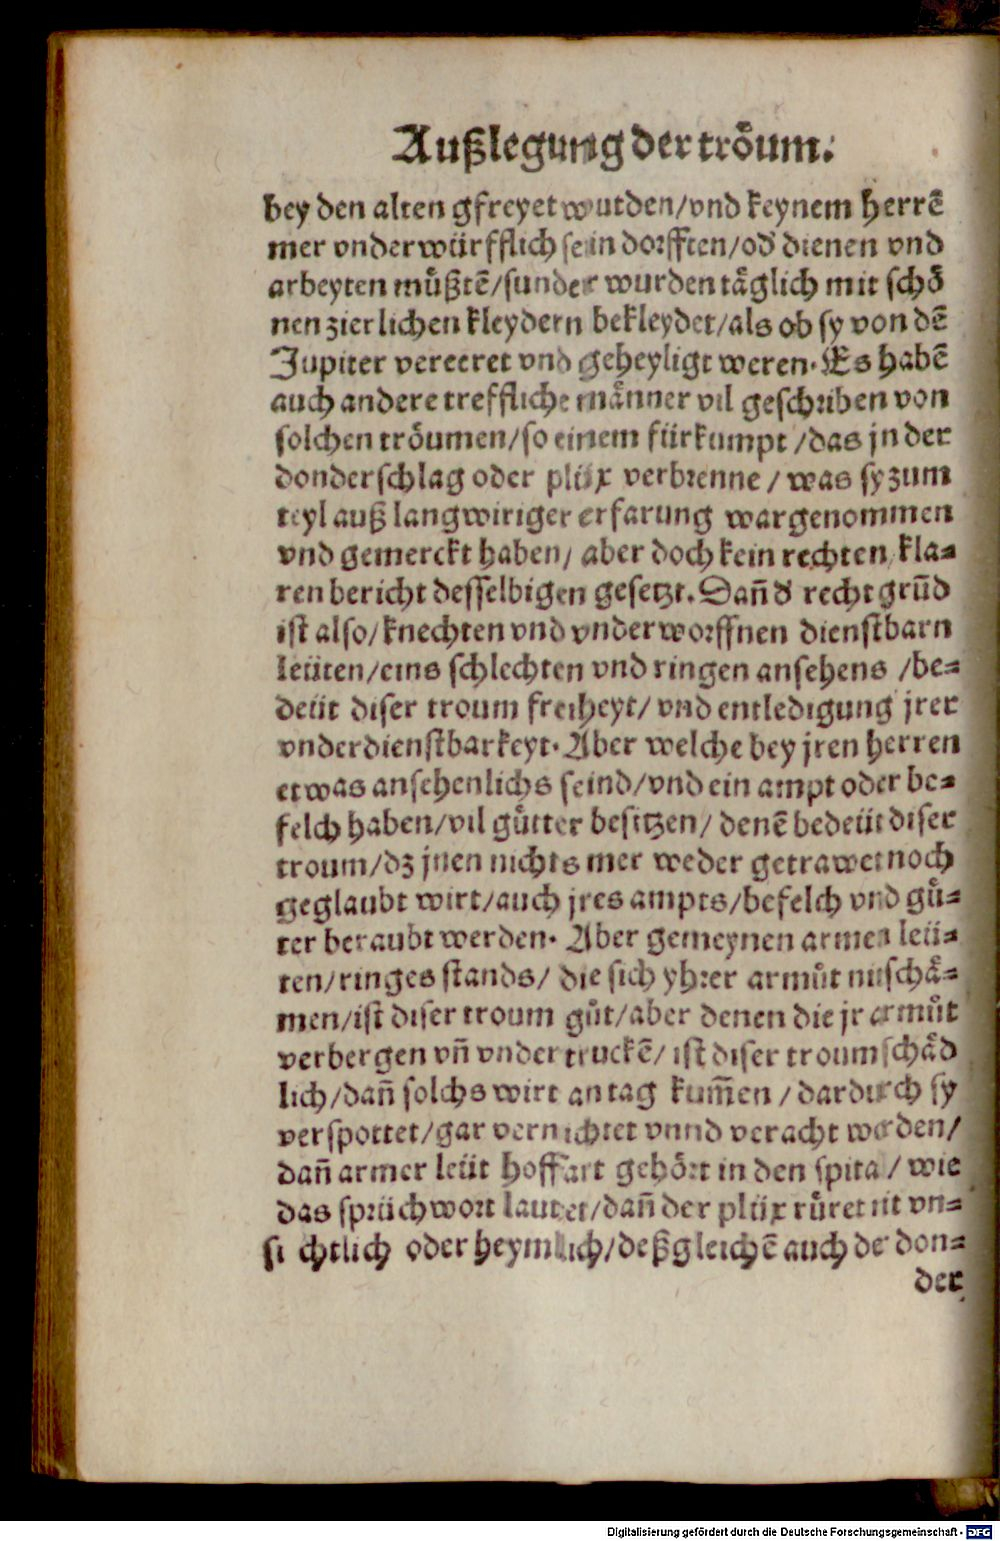 Außlegung der trőum.
bey den alten gfreyet wutden/vnd keynem herrē
mer vnderwürfflich sein dorfften/od' dienen vnd
arbeyten můßtē/sunder wurden tåglich mit schō
nen zierlichen kleydern bekleydet/als ob sy von dē
Jupiter vereeret vnd geheyligt weren. Es habē
auch andere treffliche månner vil geschriben von
solchen tröumen/so einem fürkumpt/das jn der
donderschlag oder plüx verbrenne/was sy zum
teyl auß langwiriger erfarung wargenommen
vnd gemerckt haben/aber doch kein rechten kla-
ren bericht desselbigen gesetzt. Dañ d' recht grūd
ist also/knechten vnd vnderworffnen dienstbarn
leüten/eins schlechten vnd ringen ansehens/be-
deüt diser troum freiheyt/vnd entledigung jrer
vnderdienstbarkeyt. Aber welche bey jren herren
etwas ansehenlichs seind/vnd ein ampt oder be-
felch haben/vil gůtter besitzen/denē bedeüt diser
troum/dz jnen nichts mer weder getrawet noch
geglaubt wirt/auch jres ampts/befelch vnd gů-
ter beraubt werden. Aber gemeynen armen leü-
ten/ringes stands/die sich yhrer armůt nit schå-
men/ist diser troum gůt/aber denen die jr armůt
verbergen vñ vndertruckē/ist diser troum schåd
lich/dañ solchs wirt an tag kum̃en/dardurch sy
verspottet/gar vernichtet vnnd veracht werden/
dañ armer leüt hoffart gehőrt in den spital/wie
das sprüchwort lautet/dañ der plüx růret nit vn-
si chtlich oder heymlich/deßgleichē auch de don-
der
Digitalisierung gefördert durch die Deutsche Forschungsgemeinschaft - DFG